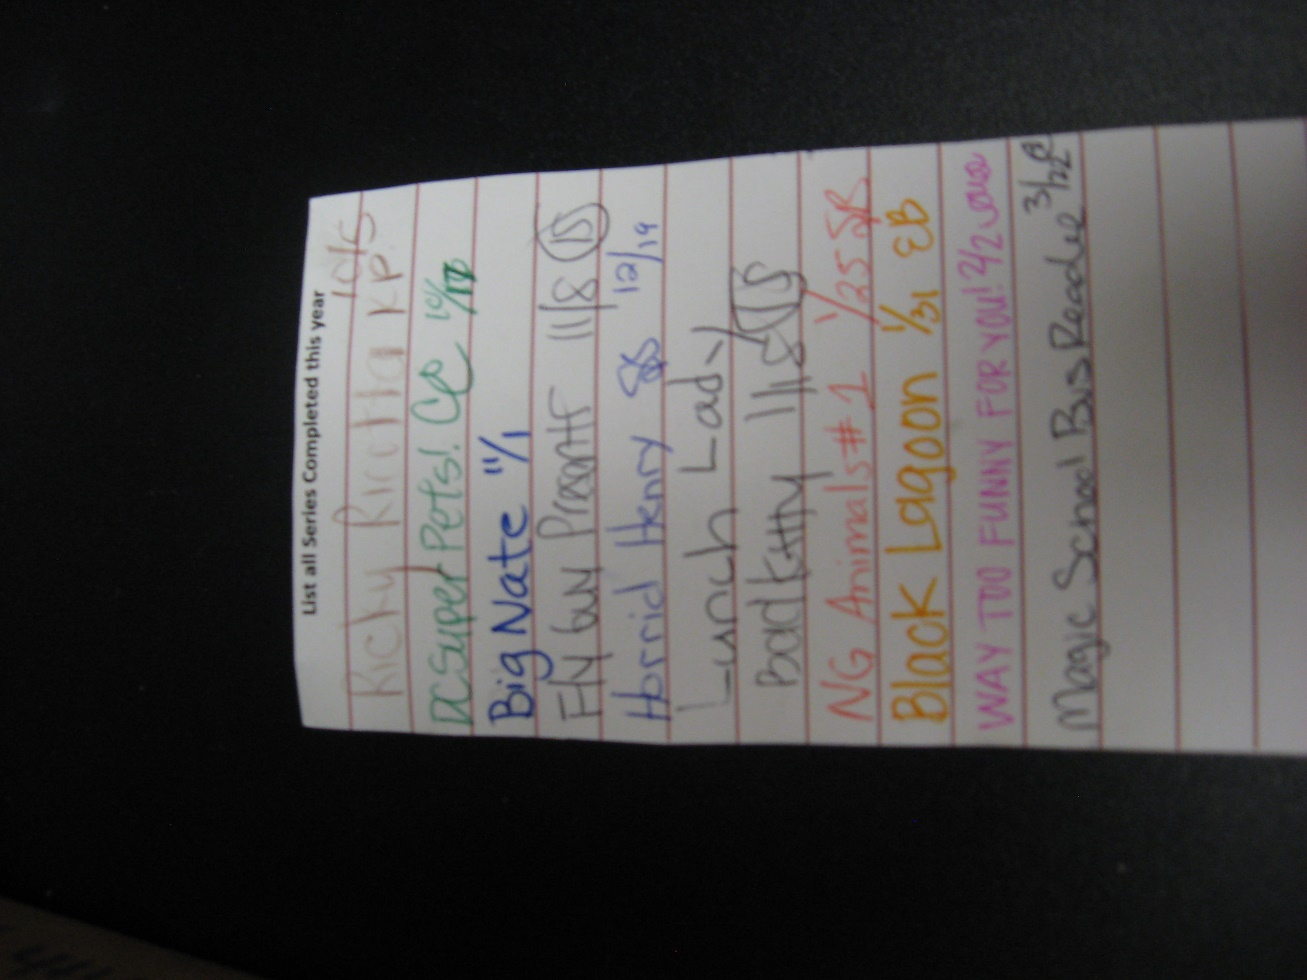 List all Series Completed this year
Ricky Ricotta KP. 10/5
DC Super Pets! 10/
Big Nate 11/1
Fly buy Presents 11/8 15
Horrid Henry 12/19
Lunch Lady
Bad Kitty 1/18 15
NG Animals #1 1/25
Black Lagoon 1/31 EB
WAY TOO FUNNY FOR YOU! 2/2
Magic School Bus Reader 3/22